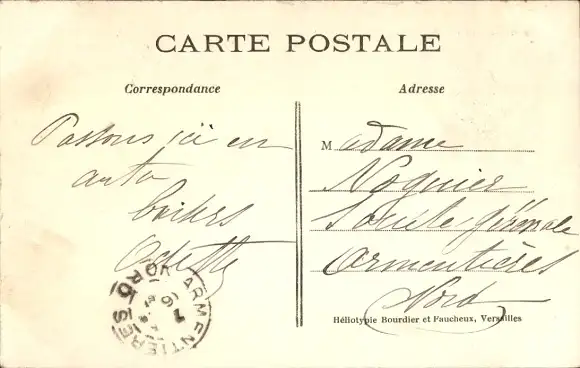 CARTE POSTALE
Correspondance
Adresse
Passons ici en
auto
Odette
Madame
Noguier
Société générale
Armentières
Nord
ARMENTIERES
NORD
Héliotypie Bourdier et Faucheux, Versailles